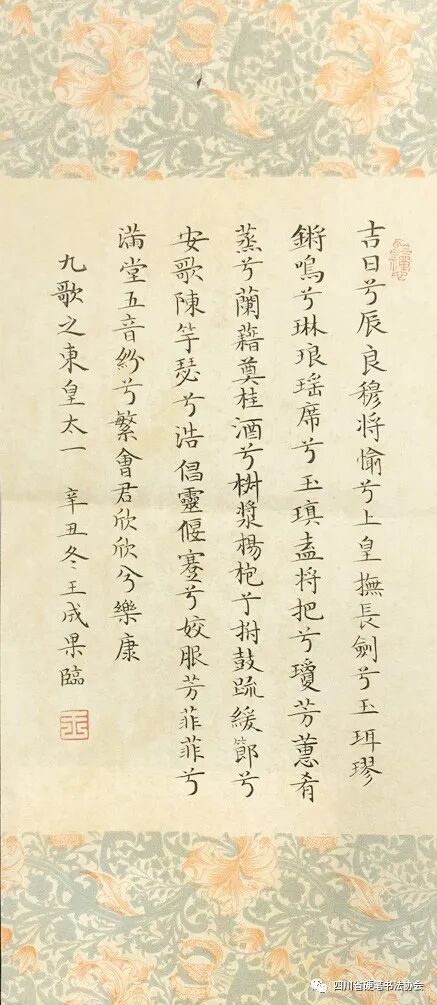 吉日兮辰良穆将愉兮上皇撫長劍兮玉珥璆
鏘鳴兮琳琅瑶席兮玉瑱盍将把兮瓊芳蕙肴
蒸兮蘭藉奠桂酒兮椒漿楊枹兮拊鼓疏緩節兮
安歌陳竽瑟兮浩倡靈偃蹇兮姣服芳菲菲兮
滿堂五音紛兮繁會君欣欣兮樂康
九歌之東皇太一 辛丑冬王成果臨
四川省硬笔书法协会